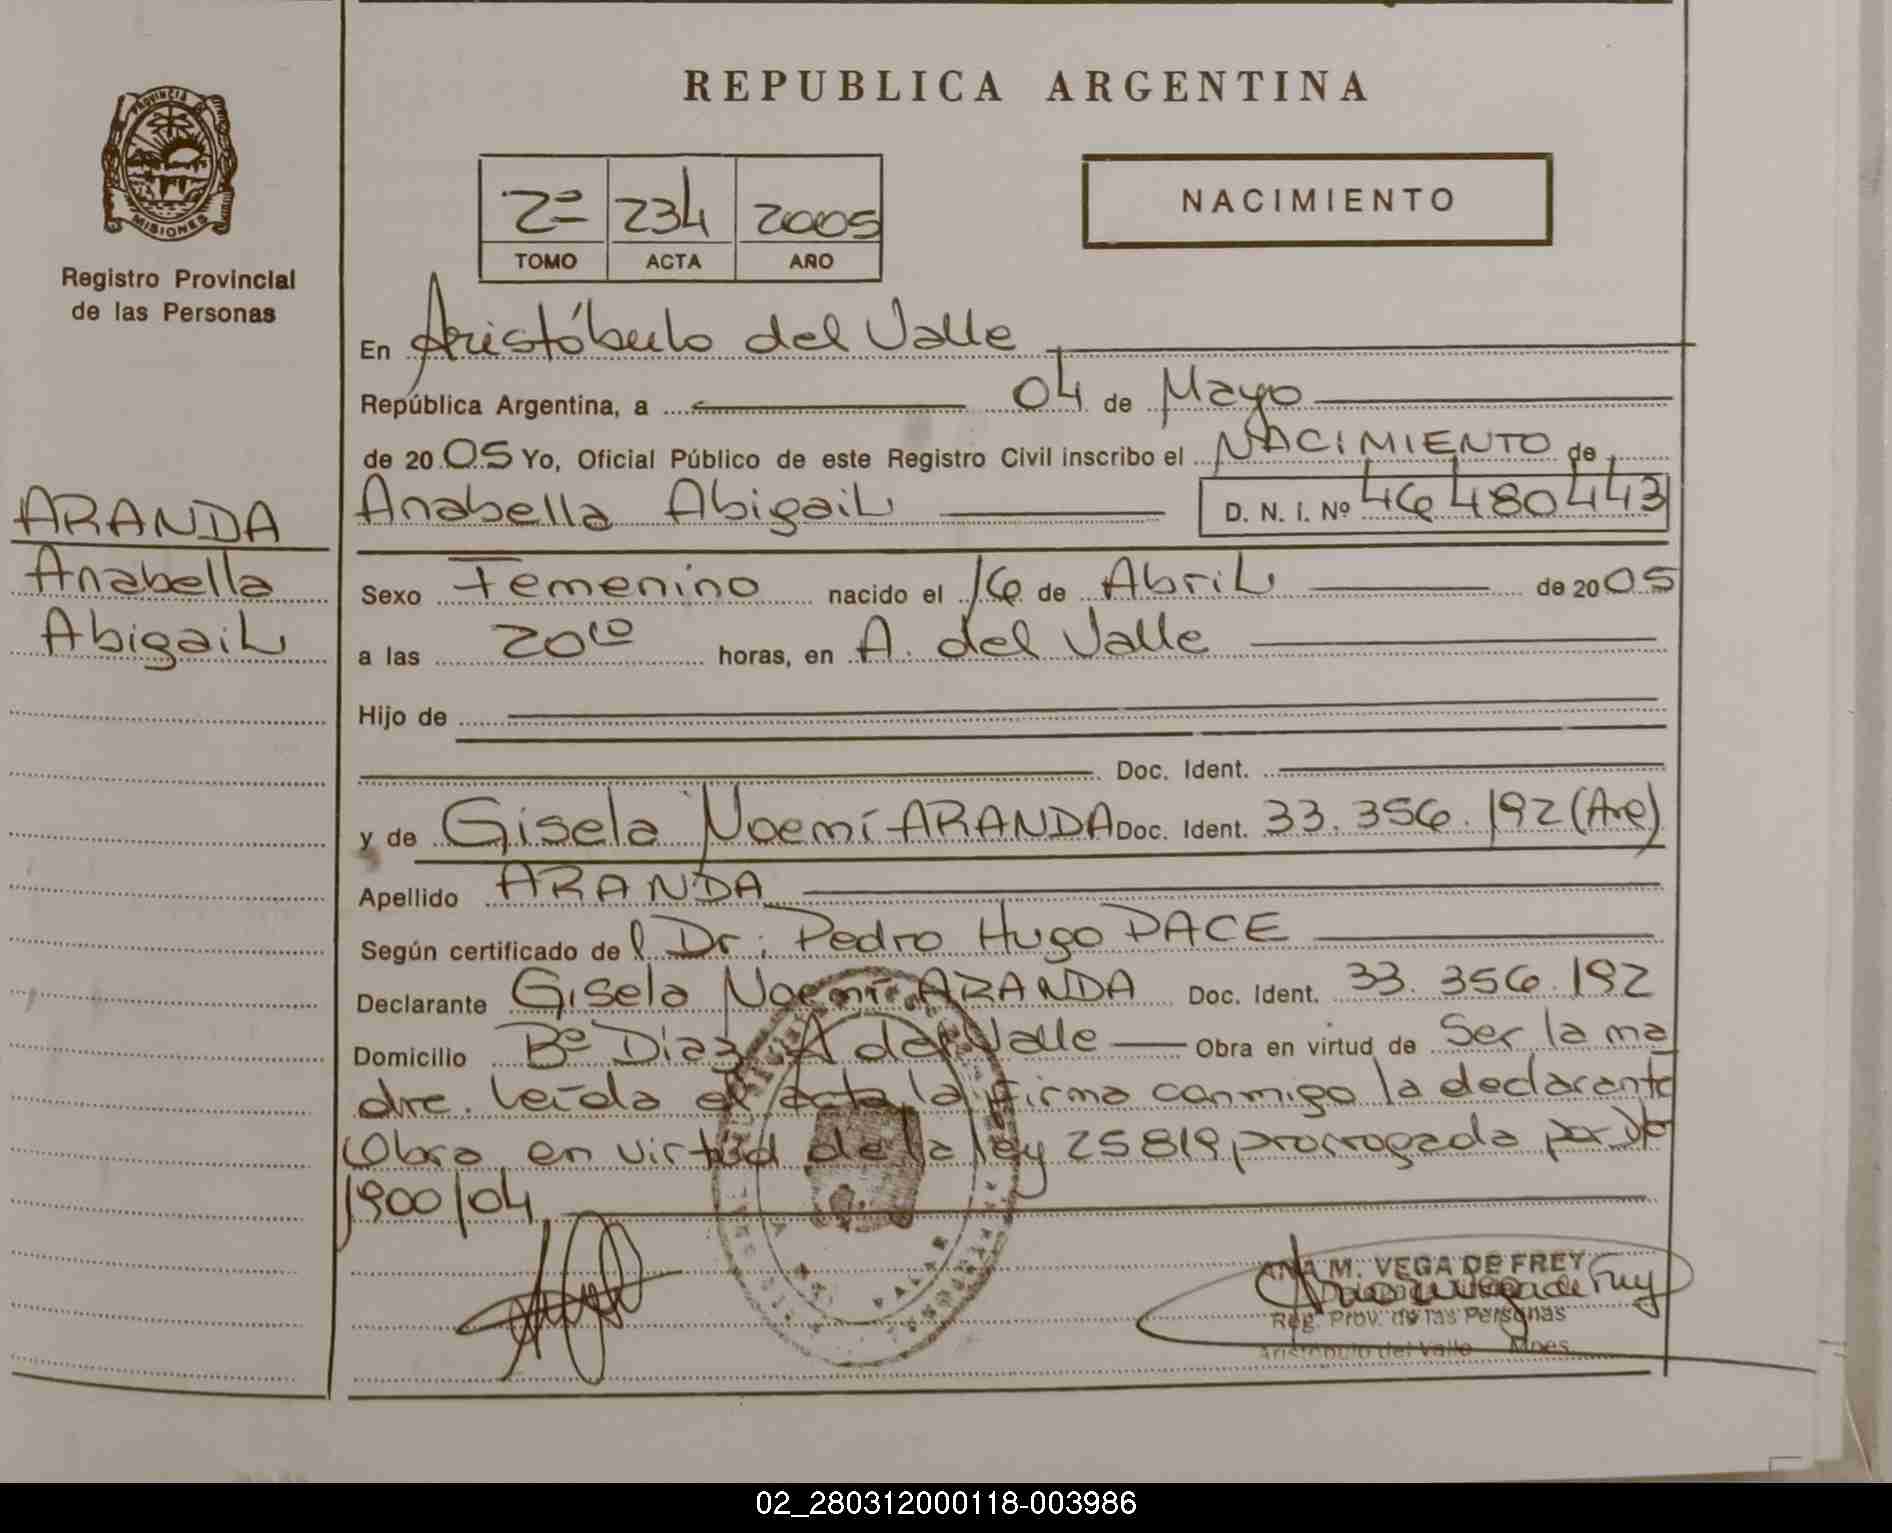 REPUBLICA ARGENTINA
PROVINCIA
MISIONES
Registro Provincial
de las Personas
2º 234 2005
TOMO ACTA AÑO
NACIMIENTO
En Aristóbulo del Valle
República Argentina, a 04 de Mayo
de 2005 Yo, Oficial Público de este Registro Civil inscribo el NACIMIENTO de
Anabella Abigail D. N. I. Nº 46480443
ARANDA
Anabella
Abigail
Sexo Femenino nacido el 16 de Abril de 2005
a las 20¹⁰ horas, en A. del Valle
Hijo de
Doc. Ident.
y de Gisela Noemí ARANDA Doc. Ident. 33.356.192 (Arg)
Apellido ARANDA
Según certificado del Dr. Pedro Hugo PACE
Declarante Gisela Noemí ARANDA Doc. Ident. 33.356.192
Domicilio Bº Diaz A del Valle Obra en virtud de Ser la ma
dre. Leída el acta la firma conmigo la declarante
Obra en virtud de la ley 25819 prorrogada por
1900/04
ANA M. VEGA DE FREY
Reg. Prov. de las Personas
Aristóbulo del Valle Mnes
02_280312000118-003986